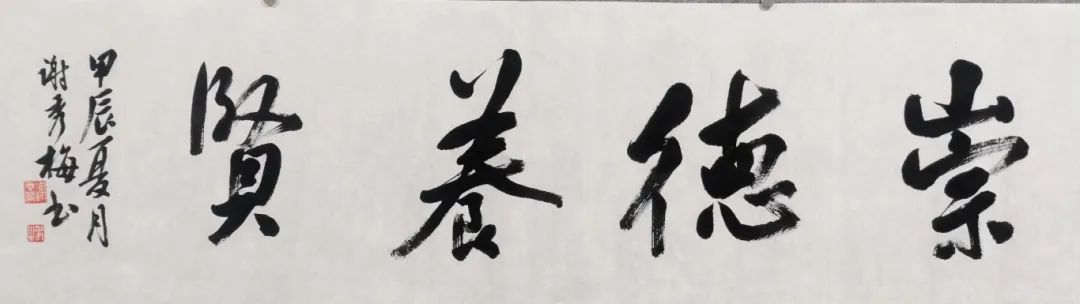 崇德養賢
甲辰夏月
谢秀梅书